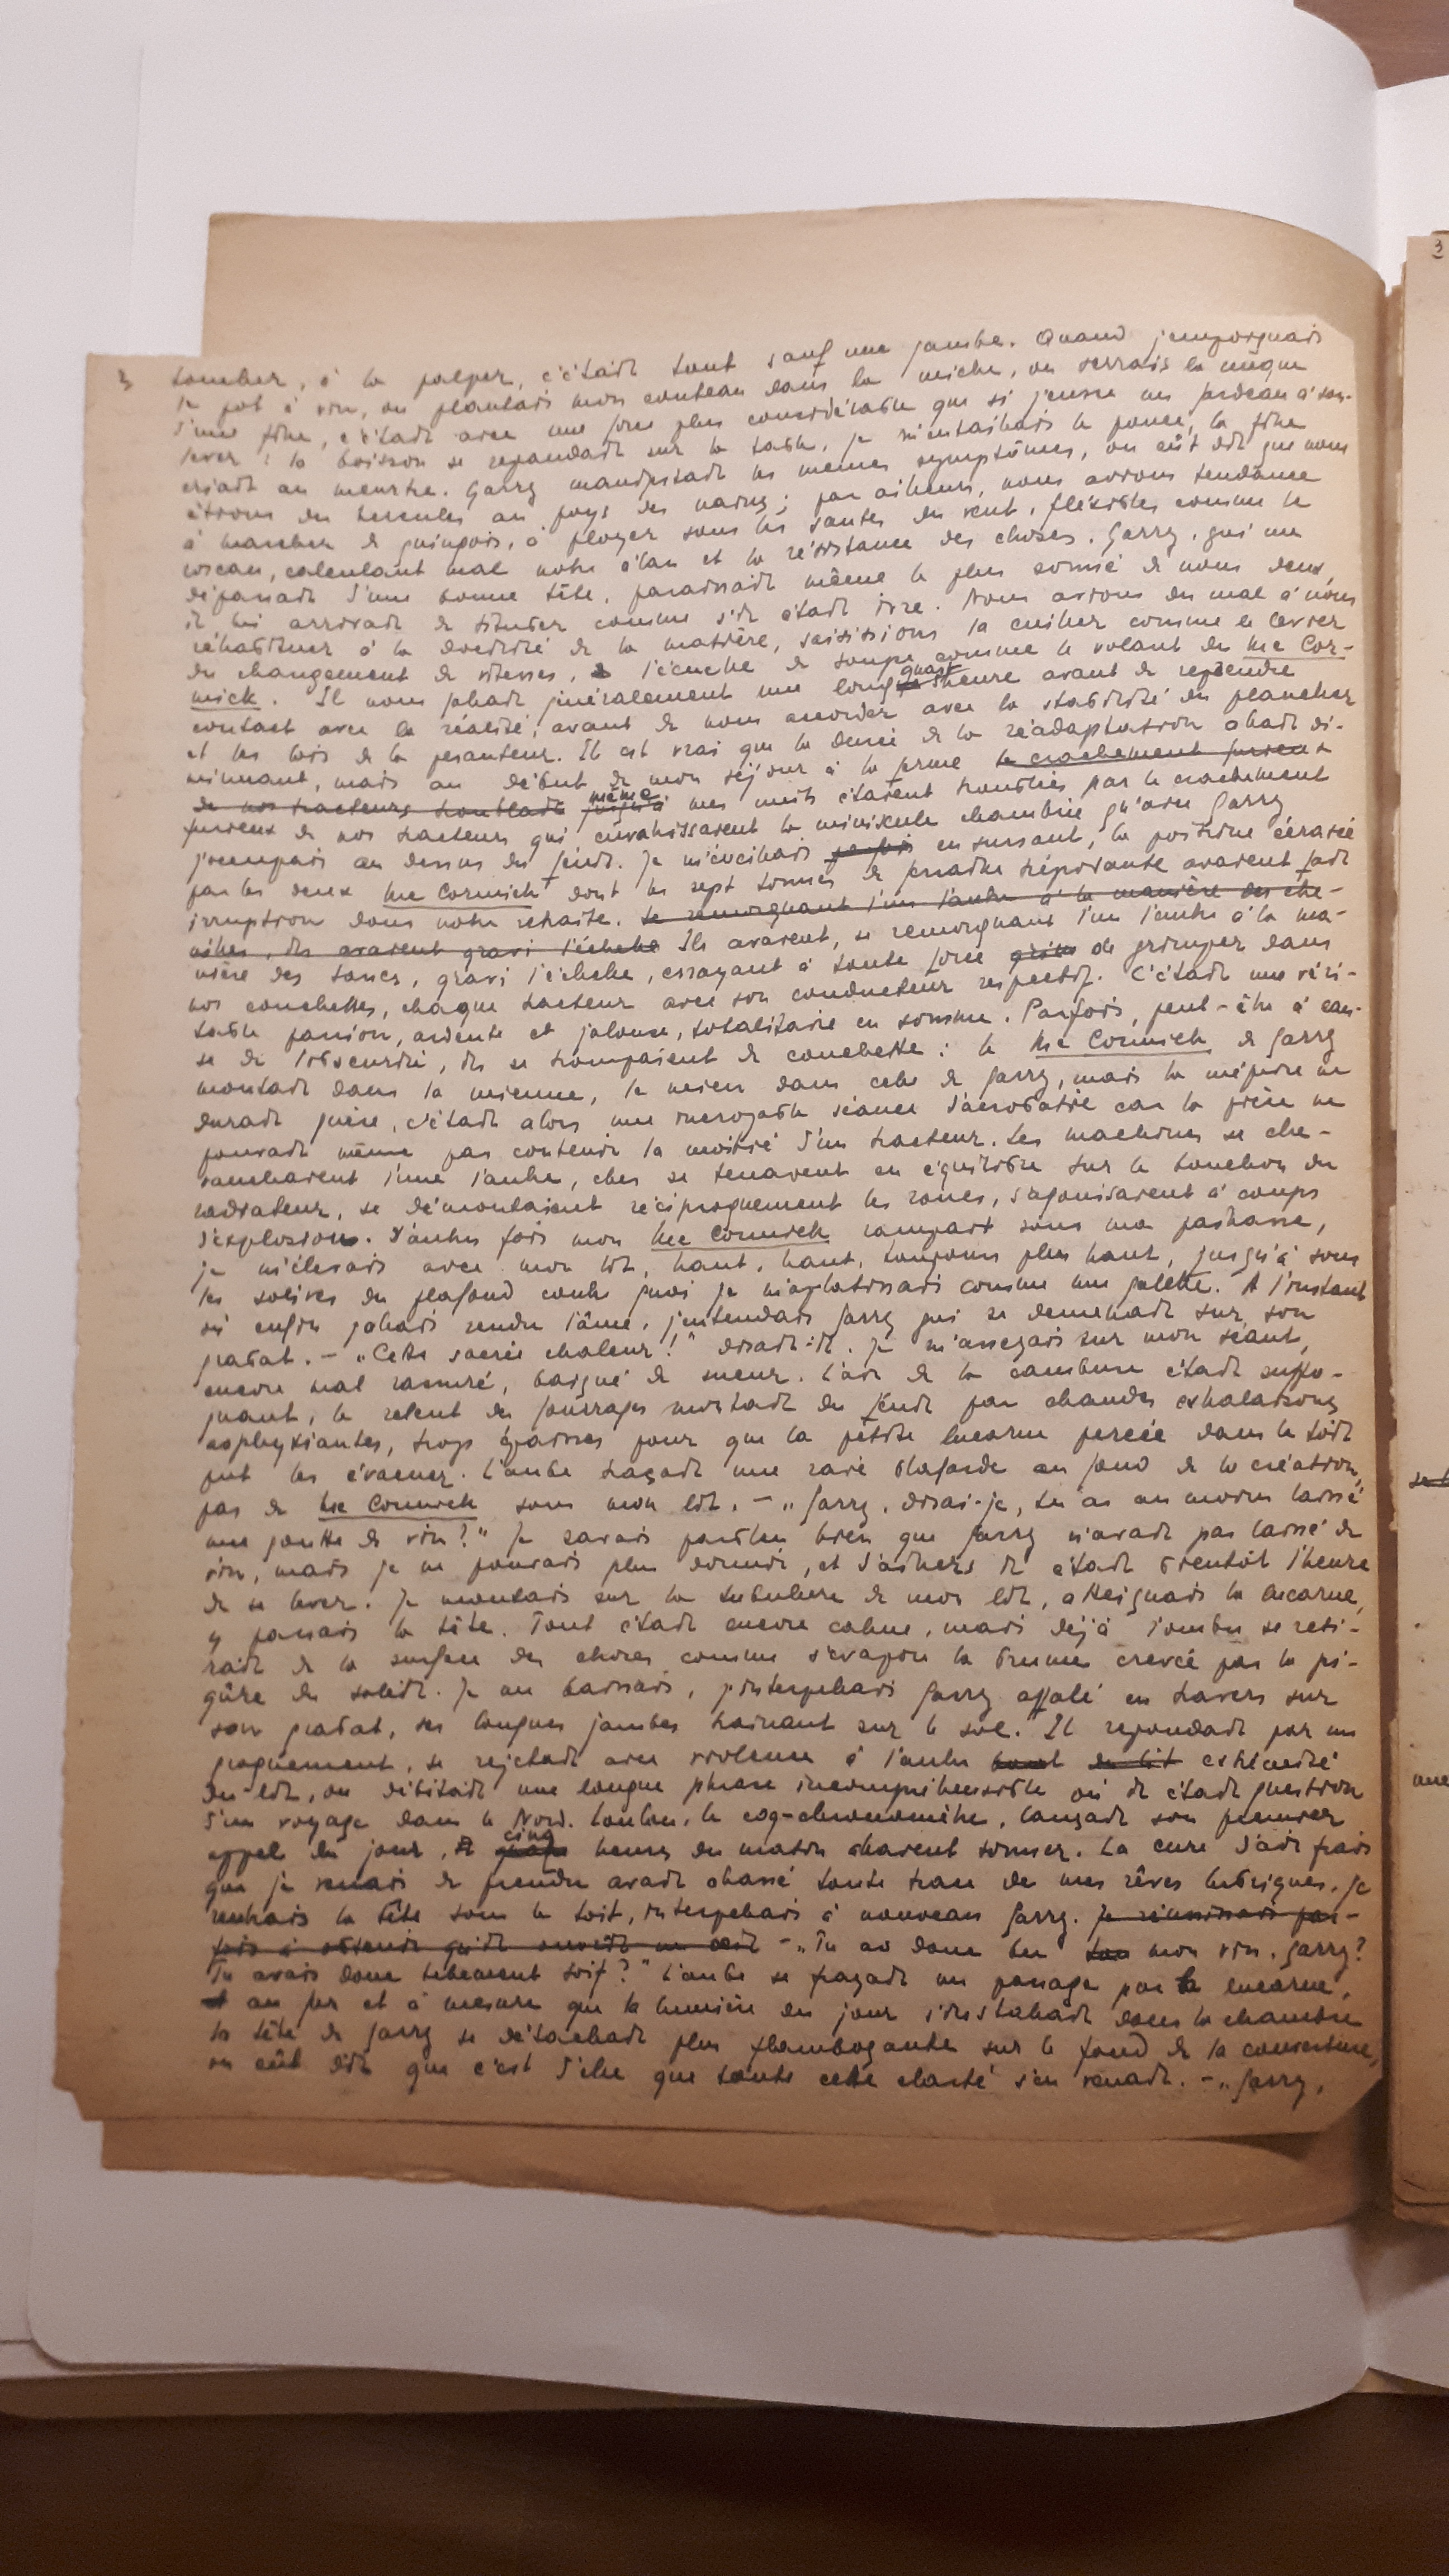 3 tomber, à la palper, c'était tout sauf une jambe. Quand j'empoignais
le pot à vin, ou plantais mon couteau dans la miche, ou serrais la nuque
d'une fille, c'était avec une force plus considérable que si j'eusse un fardeau à sou-
lever : la boisson se répandait sur la table, je m'entaillais le pouce, la fille
criait au meurtre. Garry manifestait les mêmes symptômes, on eût dit que nous
étions des hercules au pays des nains ; par ailleurs, nous avions tendance
à marcher de guingois, à ployer sous les sautes du vent, flexibles comme le
roseau, calculant mal notre élan et la résistance des choses. Garry, qui me
dépassait d'une bonne tête, paraissait même le plus sonné de nous deux,
il lui arrivait de tituber comme s'il était ivre. Nous avions du mal à nous
réhabituer à la docilité de la matière, saisissions la cuiller comme le levier
du changement de vitesses, l'écuelle de soupe comme le volant du Mc Cor-
mick. Il nous fallait généralement une long quart d'heure avant de reprendre
contact avec la réalité, avant de nous accorder avec la stabilité du plancher
et les lois de la pesanteur. Il est vrai que la durée de la réadaptation allait di-
minuant, mais au début de mon séjour à la ferme le crachement furieux
de nos tracteurs troublait jusqu'à même mes nuits étaient troublées par le crachement
furieux de nos tracteurs qui envahissaient la minuscule chambrée qu'avec Garry
j'occupais au dessus du fenil. Je m'éveillais parfois en sursaut, la poitrine écrasée
par les deux Mc Cormick dont les sept tonnes de ferraille trépidante avaient fait
irruption dans notre retraite. Se remorquant l'un l'autre à la manière des che-
nilles, ils avaient gravi l'échelle Ils avaient, se remorquant l'un l'autre à la ma-
nière des tancs, gravi l'échelle, essayant à toute force de grimper dans
nos couchettes, chaque tracteur avec son conducteur respectif. C'était une véri-
table passion, ardente et jalouse, totalitaire en somme. Parfois, peut-être à cau-
se de l'obscurité, ils se trompaient de couchette : le Mc Cormick de Garry
montait dans la mienne, le mien dans celle de Garry, mais la méprise ne
durait guère, c'était alors une incroyable séance d'acrobatie car la pièce ne
pouvait même pas contenir la moitié d'un tracteur. Les machines se che-
vauchaient l'une l'autre, elles se tenaient en équilibre sur le bouchon du
radiateur, se démontaient réciproquement les roues, s'agonisaient à coups
d'explosions. D'autres fois mon Mc Cormick rampait sous ma paillasse,
je m'élevais avec mon lit, haut, haut, toujours plus haut, jusqu'à sous
les solives du plafond contre quoi je m'aplatissais comme une galette. A l'instant
où enfin j'allais rendre l'âme, j'entendais Garry qui se démenait sur son
grabat. – „Cette sacrée chaleur !" disait-il. Je m'asseyais sur mon séant,
encore mal rassuré, baigné de sueur. L'air de la cambuse était suffo-
quant, le relent des fourrages montait du fenil par chaudes exhalaisons
asphyxiantes, trop épaisses pour que la petite lucarne percée dans le toit
put les évacuer. L'aube traçait une raie blafarde au fond de la création,
pas de Mc Cormick sous mon lit. – „Garry, disai-je, tu as au moins laissé
une goutte de vin ?" Je savais parbleu bien que Garry n'avait pas laissé de
vin, mais je ne pouvais plus dormir, et d'ailleurs il était bientôt l'heure
de se lever. Je montais sur la tubulure de mon lit, atteignais la lucarne,
y passais la tête. Tout était encore calme, mais déjà l'ombre se reti-
rait de la surface des choses comme s'évapore la brume crevée par la pi-
qûre du soleil. Je me baissais, j'interpellais Garry affalé en travers sur
son grabat, ses longues jambes traînant sur le sol. Il répondait par un
grognement, se rejetait avec violence à l'autre bout du lit extrémité
du lit, ou débitait une longue phrase incompréhensible où il était question
d'un voyage dans le Nord. Loulou, le coq-chronomètre, lançait son premier
appel du jour, cinq heures du matin allaient sonner. La cure d'air frais
que je venais de prendre avait chassé toute trace de mes rêves lubriques. Je
rentrais la tête sous le toit, interpellais à nouveau Garry. Je réussissais par-
fois à obtenir qu'il ouvrît un œil – „Tu as donc bu ton mon vin, Garry ?
Tu avais donc tellement soif ?" L'aube se frayait un passage par la lucarne,
et au fur et à mesure que la lumière du jour s'installait dans la chambre
la tête de Garry se détachait plus flamboyante sur le fond de la couverture,
on eût dit que c'est d'elle que toute cette clarté s'en venait. – „Garry,